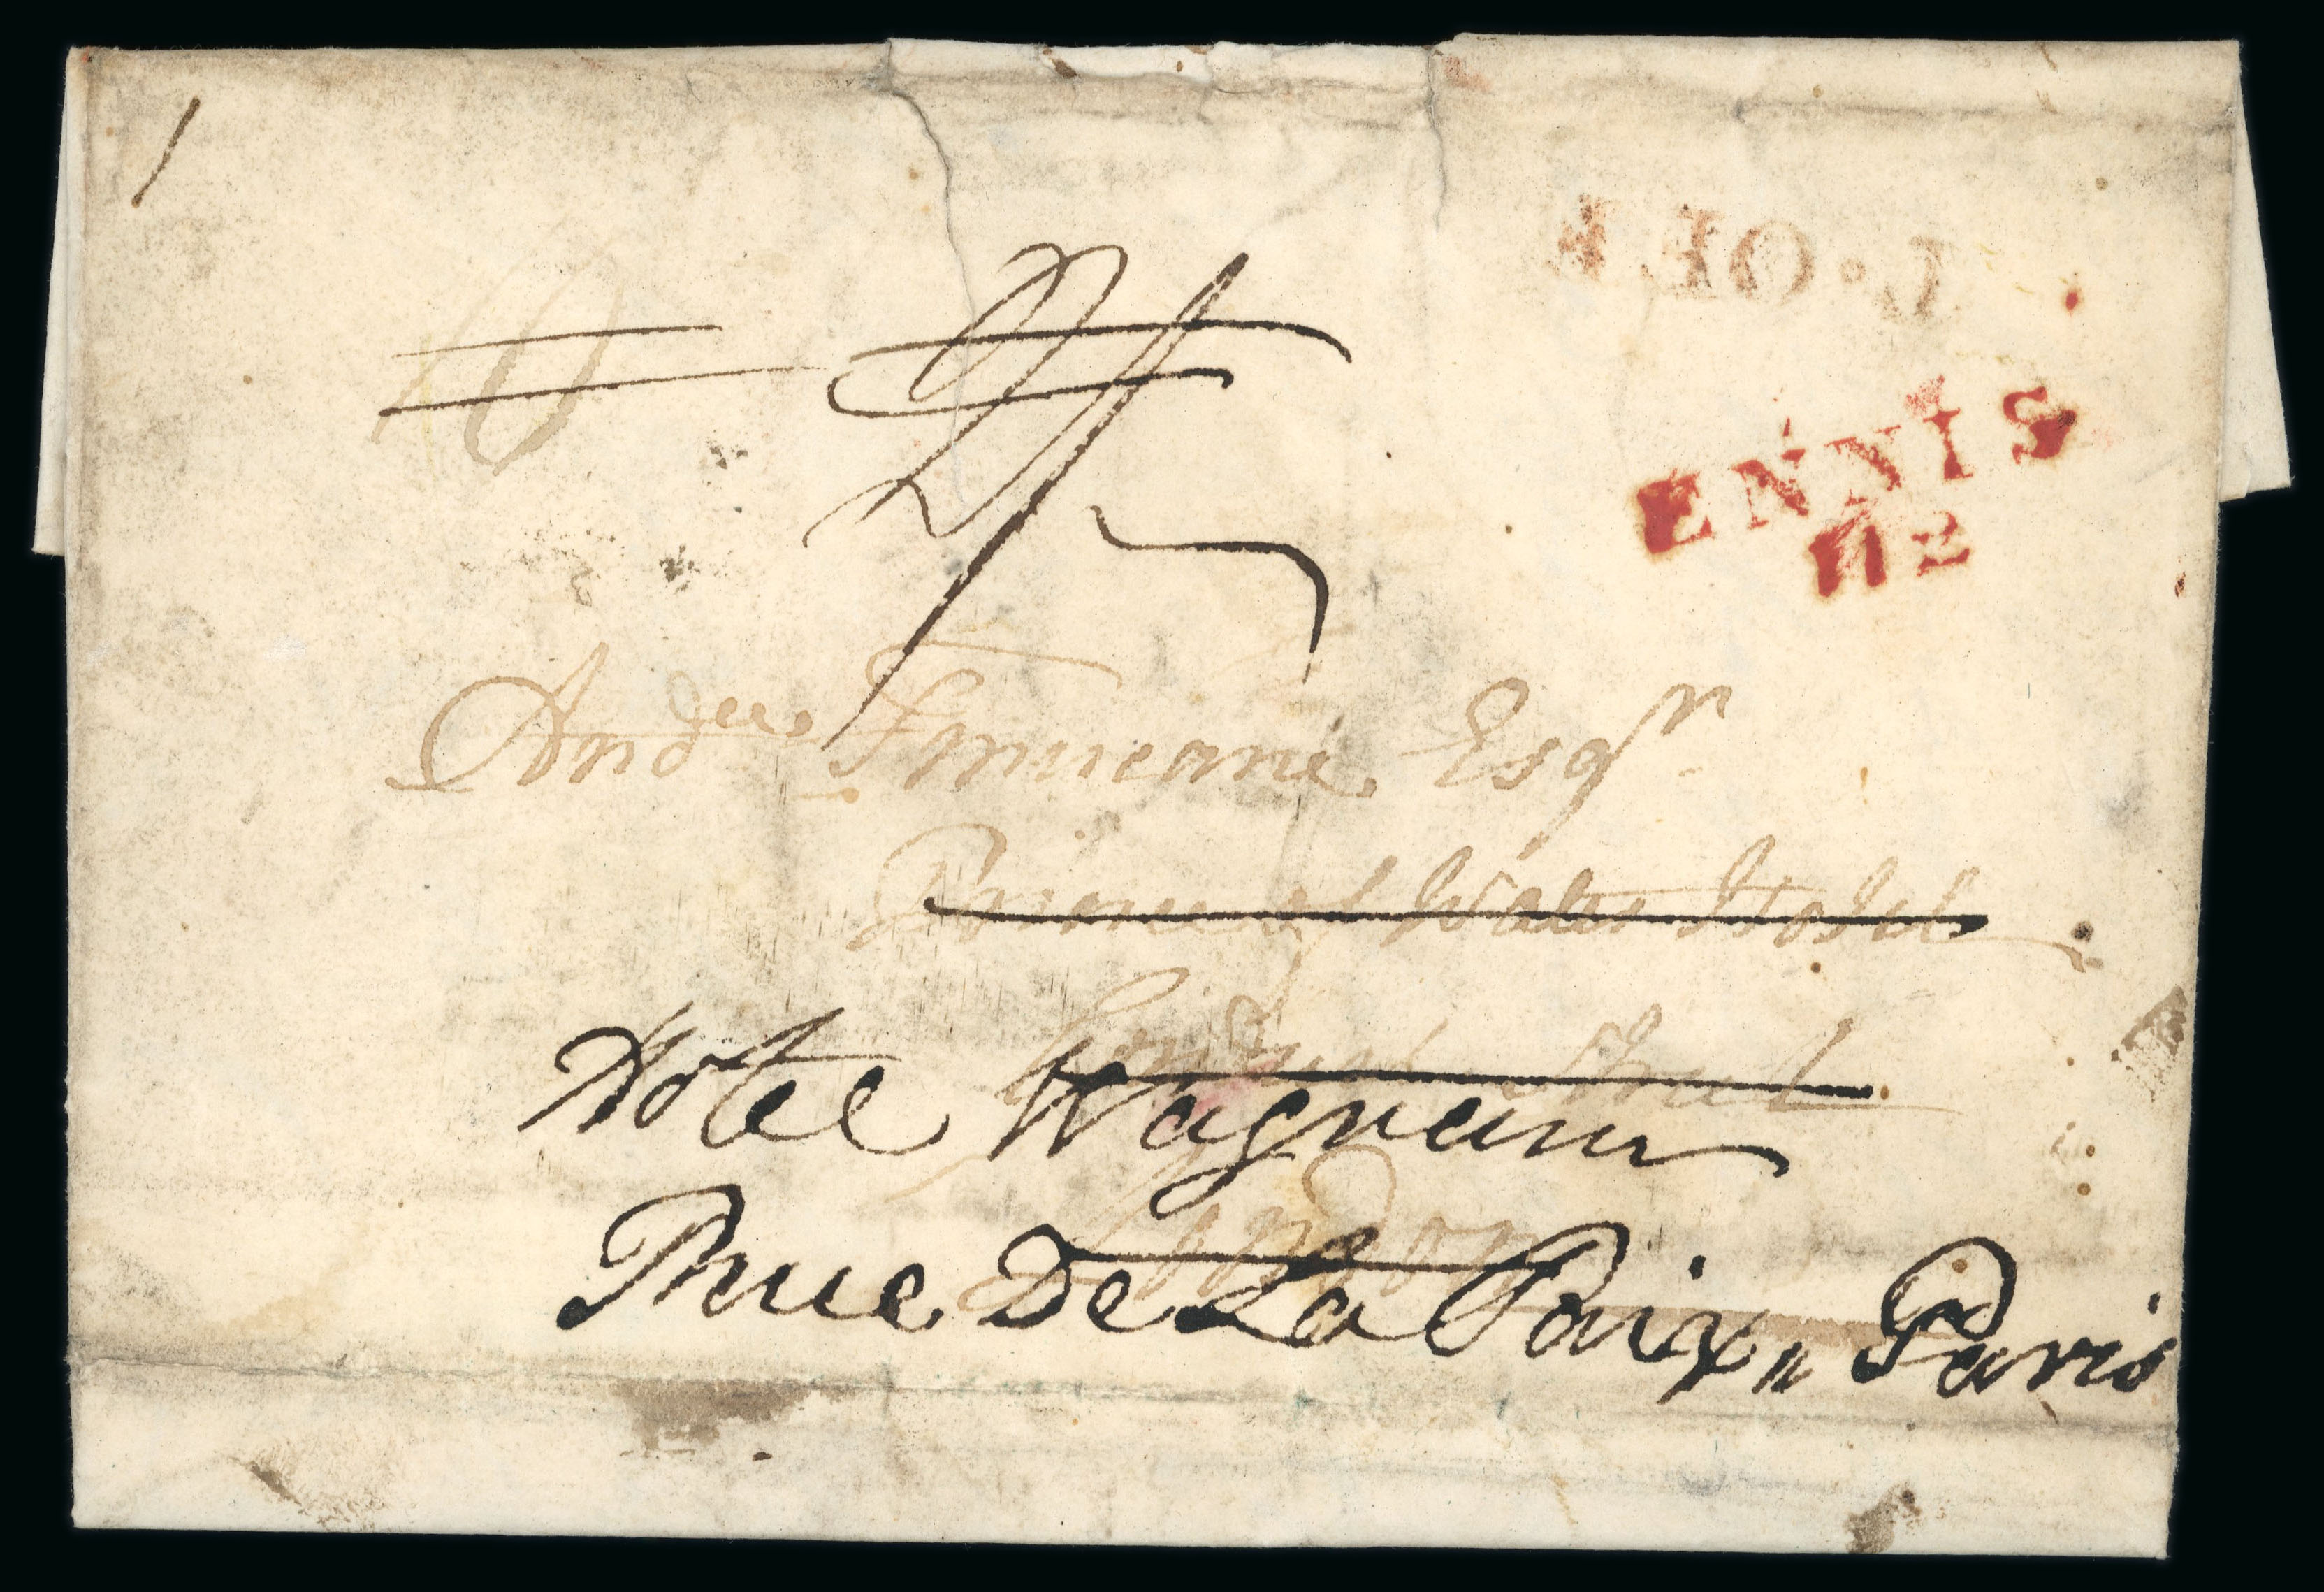 ENNIS
112
Andrew Finucane Esqr
Prince of Wales Hotel
Conduit Street
London
Hotel Wagram
Rue De La Paix, Paris